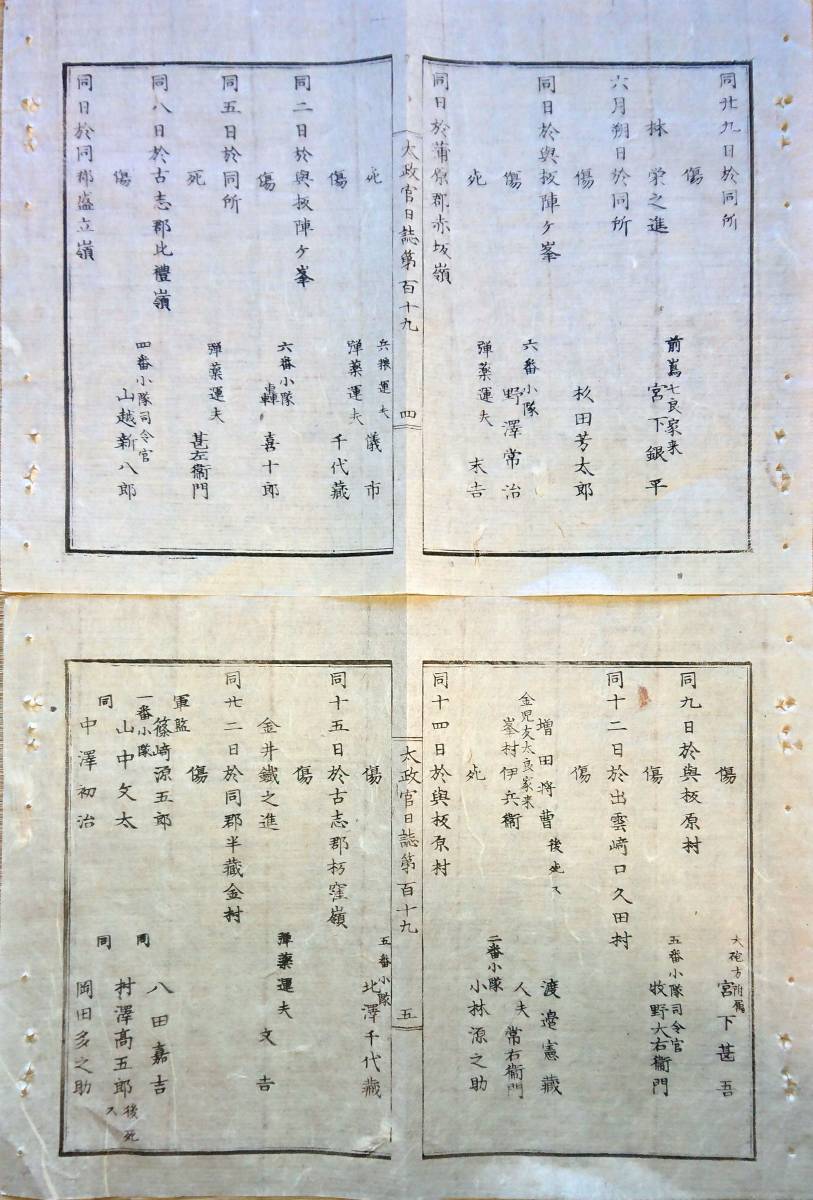 同廿九日於同所
傷
林榮之進
前嶌七良家来
宮下銀平
六月朔日於同所
傷
杦田芳太郎
同日於與板陣ケ峯
傷
六番小隊
野澤常治
同日於蒲原郡赤坂嶺
死
弾薬運夫 末吉
太政官日誌第百十九
四
死
兵粮運夫 儀市
傷
弾薬運夫 千代藏
同二日於與板陣ケ峯
傷
六番小隊
轟喜十郎
同五日於同所
死
弾薬運夫 甚左衞門
同八日於古志郡比禮嶺
傷
四番小隊司令官
山越新八郎
同日於同郡盛立嶺
傷
大砲方附属
宮下甚吾
同九日於與板原村
傷
五番小隊司令官
牧野大右衞門
同十二日於出雲﨑口久田村
傷
渡邉憲藏
増田将曹 後死ス
人夫 常右衞門
金児友太良家来
峯村伊兵衞
死
二番小隊
小林源之助
同十四日於與板原村
太政官日誌第百十九
五
傷
五番小隊
北澤千代藏
同十五日於古志郡朽窪嶺
傷
弾薬運夫 文吉
金井鐵之進
同廿二日於同郡半藏金村
傷
軍監
篠﨑源五郎
同 八田嘉吉
一番小隊
山中文太
同 村澤髙五郎 後死ス
同 中澤初治
同 岡田多之助